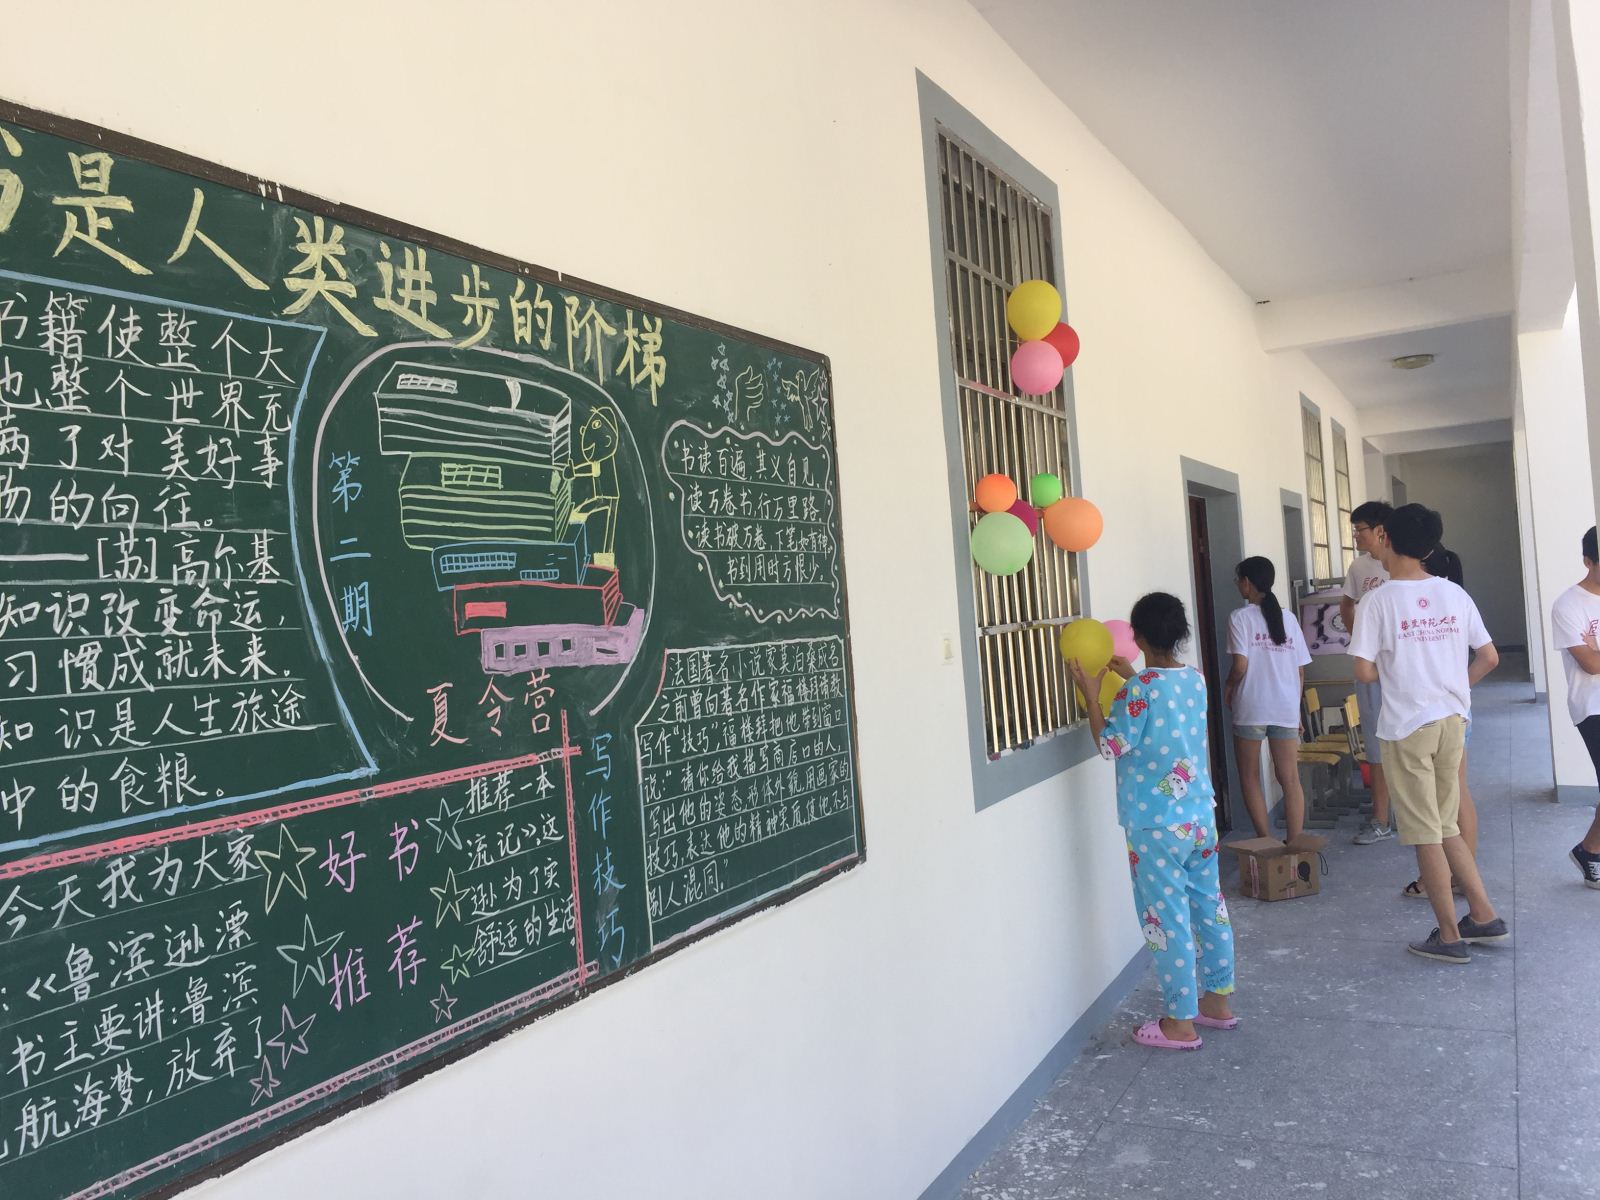 是人类进步的阶梯
书籍使整个大
也整个世界充
满了对美好事
物的向往。
——[苏]高尔基
知识改变命运,
习惯成就未来。
知识是人生旅途
中的食粮。
第二期
夏令营
书读百遍,其义自见,
读万卷书,行万里路,
读书破万卷,下笔如有神。
书到用时方恨少。
写作技巧
法国著名小说家莫泊桑成名
之前曾向著名作家福楼拜请教
写作“技巧”,福楼拜把他带到窗口
说:“请你给我描写商店口的人,
写出他的姿态,形体外貌,用画家的
技巧,表达他的精神实质,使他不与
别人混同。”
好书
推荐
今天我为大家
:《鲁滨逊漂
书主要讲:鲁滨
航海梦,放弃了
推荐一本
流记》,这
逊为了实
舒适的生活,
華東師範大學
EAST CHINA NORMAL
UNIVERSITY